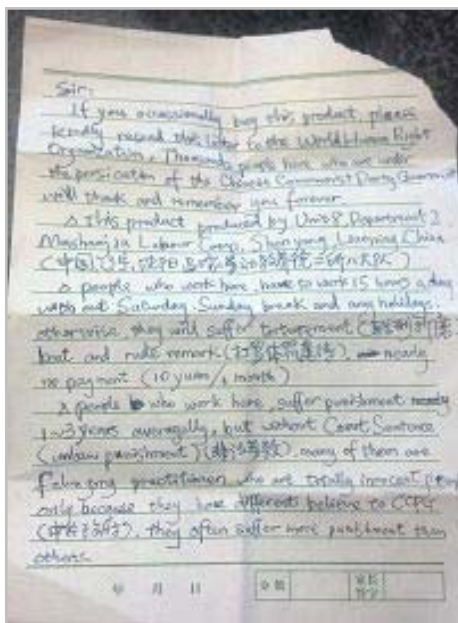 Sir:
If you occassionally buy this product, please
kindly resend this letter to the World Human Right
Organization. Thousands people here who are under
the persicution of the Chinese Communist Party Government
will thank and remember you forever.
This product produced by Unit 8, Department 2,
Mashanjia Labour Camp, Shenyang, Liaoning, China
(中国,辽宁,沈阳,马三家劳动教养院二所八大队)
people who work here, have to work 15 hours a day
with out Saturday, Sunday break and any holidays,
otherwise, they will suffer torturement
beat and rude remark (打骂体罚虐待), nearly
no payment (10 yuan/1 month)
people who work here, suffer punishment
1~3 years averagelly, but without Court Sentence
(unlaw punishment) (非法劳教), many of them are
Falungong practitioner, who are totally innocent people
only because they have different believe to CCPG
they often suffer more punishment than
others.
年 月 日